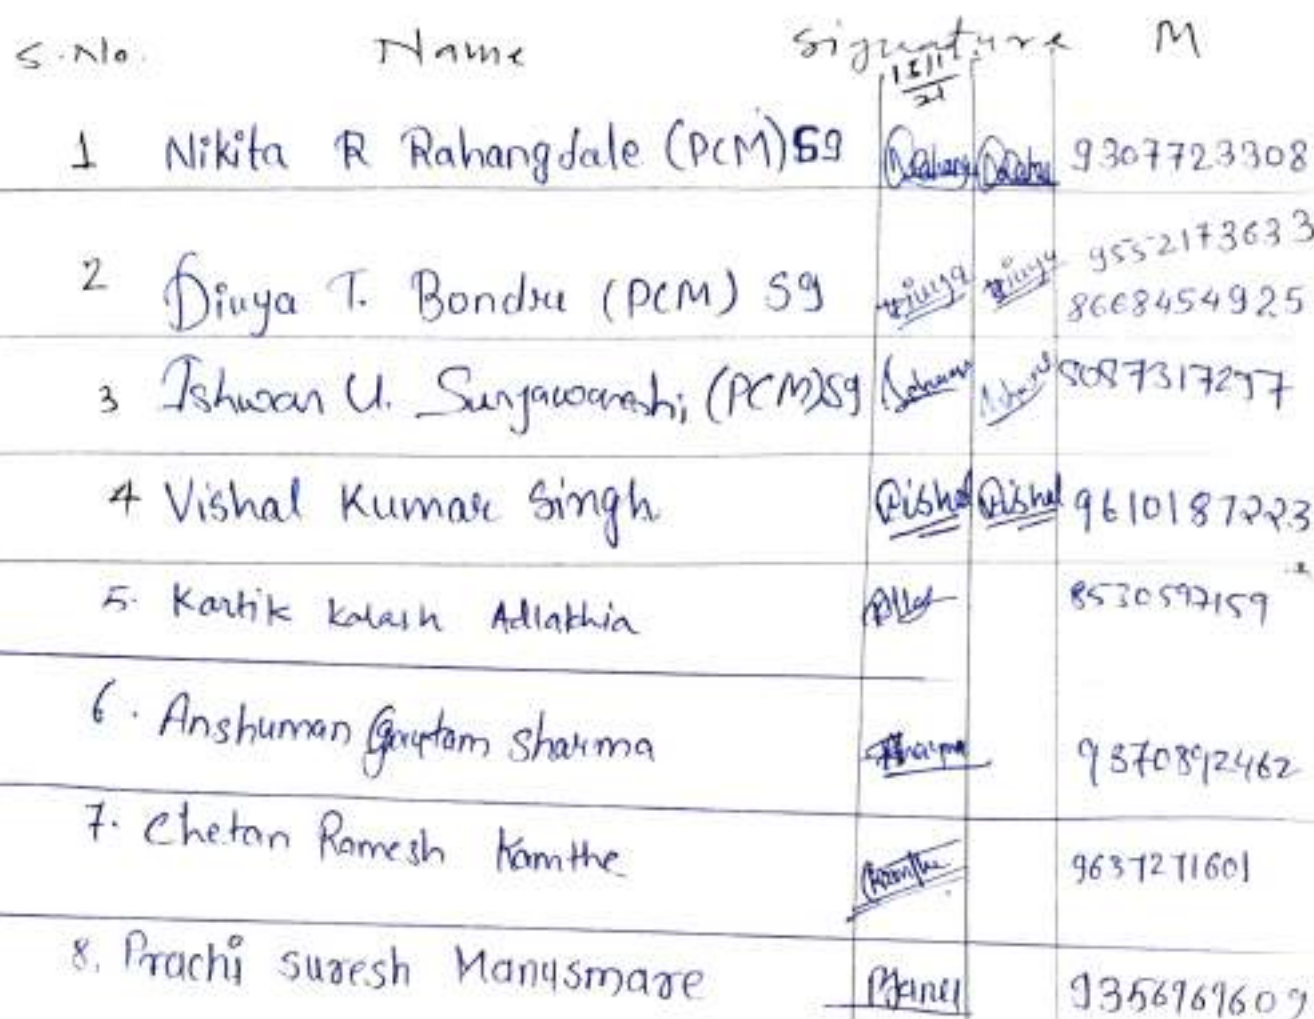 S.No. Name Signature M
15/11
21
1 Nikita R Rahangdale (PCM) S9 9307723308
2 Divya T. Bondre (PCM) S9 Divya Divya 9552173633
8668454925
3 Ishwar U. Suryawanshi (PCM) S9 8087317297
4 Vishal Kumar Singh Vishal Vishal 9610187223
5. Kartik Kalash Adlakhia 8530597159
6. Anshuman Gautam Sharma Sharma 9370892462
7. Chetan Ramesh Kamthe Kamthe 9637271601
8. Prachi suresh Manusmare 9356969609